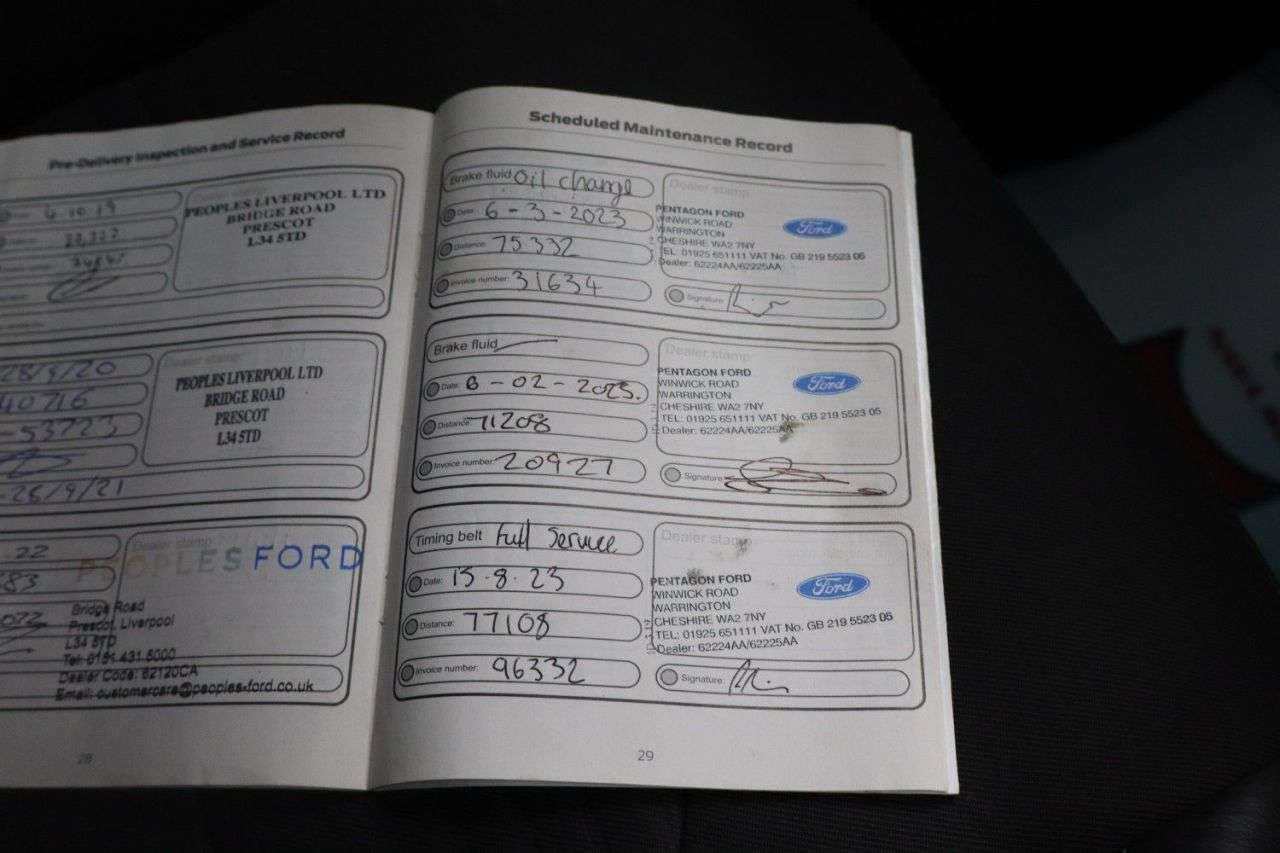 Pre-Delivery Inspection and Service Record
4.10.19
PEOPLES LIVERPOOL LTD
BRIDGE ROAD
PRESCOT
L34 5TD
28/9/20
40716
53723
26/9/21
Dealer stamp:
PEOPLES LIVERPOOL LTD
BRIDGE ROAD
PRESCOT
L34 5TD
.22
83
Dealer stamp:
PEOPLES FORD
Bridge Road
Prescot, Liverpool
L34 5TD
Tel: 0151 431 5000
Dealer Code: 62120CA
Email: customercare@peoples-ford.co.uk
28
Scheduled Maintenance Record
Brake fluid Oil change
Date: 6-3-2023
Distance: 75332
Invoice number: 31634
Dealer stamp:
PENTAGON FORD
WINWICK ROAD
WARRINGTON
CHESHIRE WA2 7NY
TEL: 01925 651111 VAT No. GB 219 5523 05
Dealer: 62224AA/62225AA
Ford
Signature:
Brake fluid
Date: 6-02-2023.
Distance: 71208
Invoice number: 20927
Dealer stamp:
PENTAGON FORD
WINWICK ROAD
WARRINGTON
CHESHIRE WA2 7NY
TEL: 01925 651111 VAT No. GB 219 5523 05
Dealer: 62224AA/62225AA
Ford
Signature:
Timing belt Full Service
Date: 15.8.23
Distance: 77108
Invoice number: 96332
Dealer stamp:
PENTAGON FORD
WINWICK ROAD
WARRINGTON
CHESHIRE WA2 7NY
TEL: 01925 651111 VAT No. GB 219 5523 05
Dealer: 62224AA/62225AA
Ford
Signature:
29